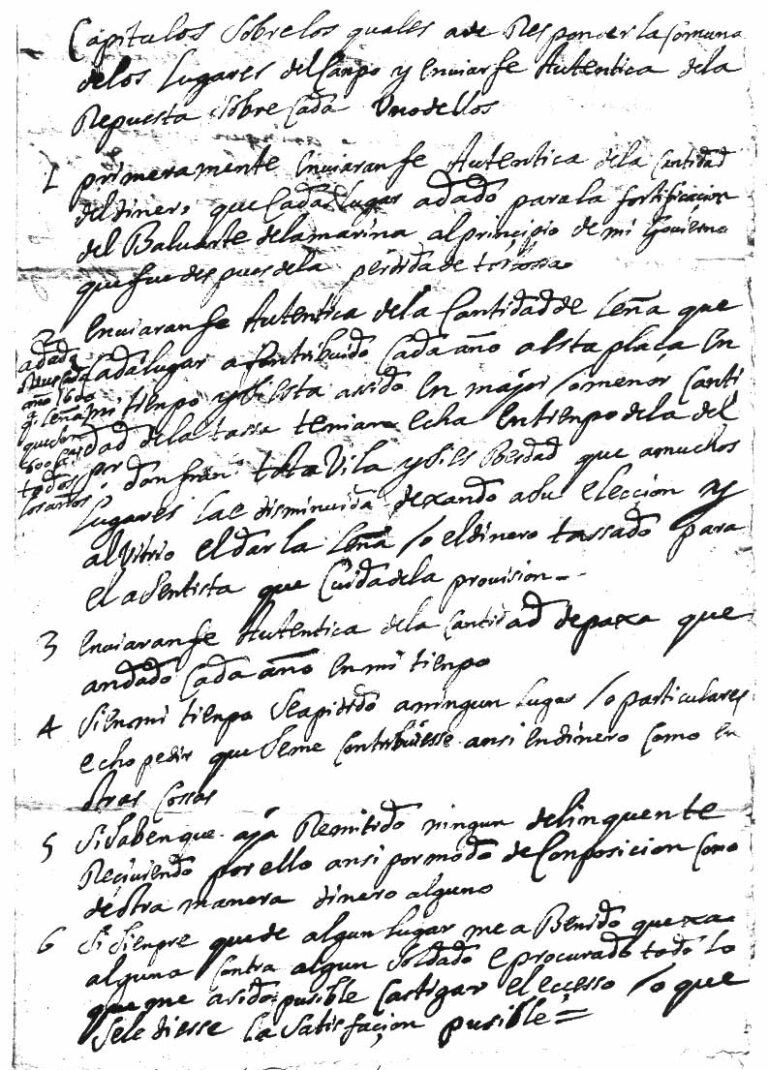 Capitulos sobre los quales a de Responder la comuna
de los Lugares del Canpo y enviar fe Autentica de la
Repuesta sobre Cada Uno dellos
1 primeramente enviaran fe Autentica de la Cantidad
del dinero que Cada Lugar a dado para la fortificacion
del Baluarte de la marina al principio de mi Govierno
que fue despues de la perdida de tortossa
2 enviaran fe Autentica de la Cantidad de Leña que
Cada lugar a Contribuido Cada año a esta plaça En
mi tienpo y si esta a sido en major /o menor Canti
dad de la tassa tenian echa en tienpo de la del
por don fran.co tota Vila y si es Berdad que a muchos
Lugares la e disminuida dexando a su eleccion y
alvitrio el dar la Leña /o el dinero tassado para
el asentista que Cuida de la provision
adado
Cada
año 1600
q.s Leña
que son
600
todos
los años
3 enviaran fe Autentica de la Cantidad de paxa que
an dado Cada año en mi tienpo
4 Si en mi tienpo Se a pidido a ningun Lugar /o particulares
e cho pedir que Se me Contribuiesse ansi en dinero Como en
otras Cossas
5 Si Saben que aja Remitido ningun delinquente
Reciviendo por ello ansi por modo de Conposicion Como
de otra manera dinero alguno
6 Si Sienpre que de algun Lugar me a Benido quexa
alguna Contra algun Soldado e procurado todo lo
que me a sido pusible Castigar el eccesso /o que
Se le diesse la Satisfaçion pusible =